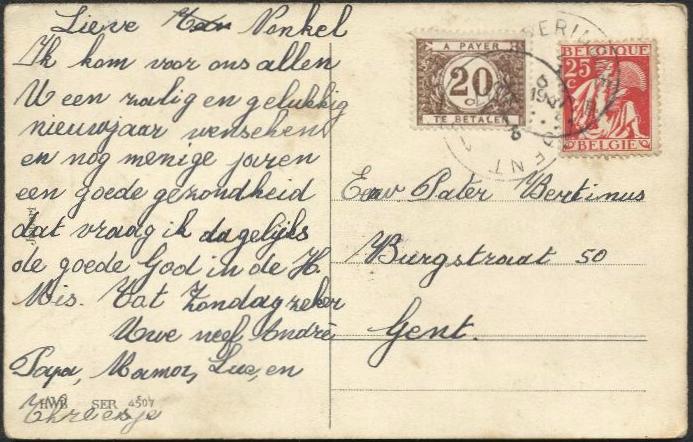 Lieve Nonkel
Ik kom voor ons allen
U een zalig en gelukkig
nieuwjaar wenschen
en nog menige jaren
een goede gezondheid
dat vraag ik dagelijks
de goede God in de H.
Mis. Tot Zondag zeker
Uwe neef André
Papa, Mamor, Luc, en
HWB SER 4507
A PAYER
20
c
TE BETALEN
BELGIQUE
25
BELGIE
Eerw Pater Bertinus
Burgstraat 50
Gent.